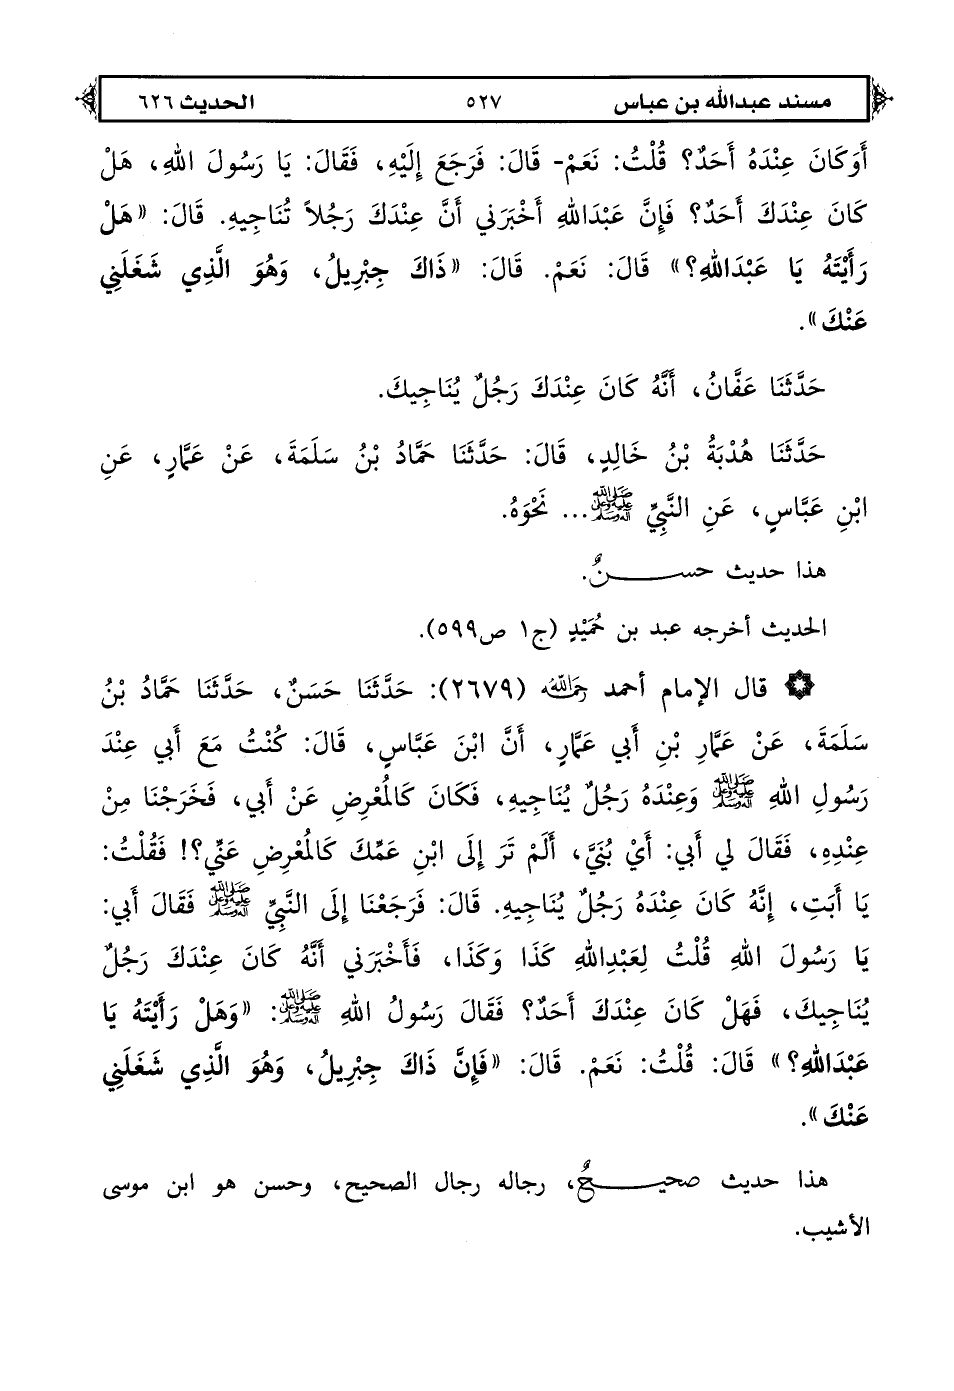 مسند عبدالله بن عباس ٥٢٧ الحديث ٦٢٦
أَوَكَانَ عِنْدَهُ أَحَدٌ؟ قُلْتُ: نَعَمْ- قَالَ: فَرَجَعَ إِلَيْهِ، فَقَالَ: يَا رَسُولَ اللهِ، هَلْ
كَانَ عِنْدَكَ أَحَدٌ؟ فَإِنَّ عَبْدَاللهِ أَخْبَرَنِي أَنَّ عِنْدَكَ رَجُلاً تُنَاجِيهِ. قَالَ: «هَلْ
رَأَيْتَهُ يَا عَبْدَاللهِ؟» قَالَ: نَعَمْ. قَالَ: «ذَاكَ جِبْرِيلُ، وَهُوَ الَّذِي شَغَلَنِي
عَنْكَ».
حَدَّثَنَا عَفَّانُ، أَنَّهُ كَانَ عِنْدَكَ رَجُلٌ يُنَاجِيكَ.
حَدَّثَنَا هُدْبَةُ بْنُ خَالِدٍ، قَالَ: حَدَّثَنَا حَمَّادُ بْنُ سَلَمَةَ، عَنْ عَمَّارٍ، عَنِ
ابْنِ عَبَّاسٍ، عَنِ النَّبِيِّ ﷺ... نَحْوَهُ.
هذا حديث حســــنٌ.
الحديث أخرجه عبد بن حُمَيْدٍ (ج١ ص٥٩٩).
۞ قال الإمام أحمد رحمه الله (٢٦٧٩): حَدَّثَنَا حَسَنٌ، حَدَّثَنَا حَمَّادُ بْنُ
سَلَمَةَ، عَنْ عَمَّارِ بْنِ أَبِي عَمَّارٍ، أَنَّ ابْنَ عَبَّاسٍ، قَالَ: كُنْتُ مَعَ أَبِي عِنْدَ
رَسُولِ اللهِ ﷺ وَعِنْدَهُ رَجُلٌ يُنَاجِيهِ، فَكَانَ كَالْمُعْرِضِ عَنْ أَبِي، فَخَرَجْنَا مِنْ
عِنْدِهِ، فَقَالَ لِي أَبِي: أَيْ بُنَيَّ، أَلَمْ تَرَ إِلَى ابْنِ عَمِّكَ كَالْمُعْرِضِ عَنِّي؟! فَقُلْتُ:
يَا أَبَتِ، إِنَّهُ كَانَ عِنْدَهُ رَجُلٌ يُنَاجِيهِ. قَالَ: فَرَجَعْنَا إِلَى النَّبِيِّ ﷺ فَقَالَ أَبِي:
يَا رَسُولَ اللهِ قُلْتُ لِعَبْدِاللهِ كَذَا وَكَذَا، فَأَخْبَرَنِي أَنَّهُ كَانَ عِنْدَكَ رَجُلٌ
يُنَاجِيكَ، فَهَلْ كَانَ عِنْدَكَ أَحَدٌ؟ فَقَالَ رَسُولُ اللهِ ﷺ: «وَهَلْ رَأَيْتَهُ يَا
عَبْدَاللهِ؟» قَالَ: قُلْتُ: نَعَمْ. قَالَ: «فَإِنَّ ذَاكَ جِبْرِيلُ، وَهُوَ الَّذِي شَغَلَنِي
عَنْكَ».
هذا حديث صحيــــحٌ، رجاله رجال الصحيح، وحسن هو ابن موسى
الأشيب.